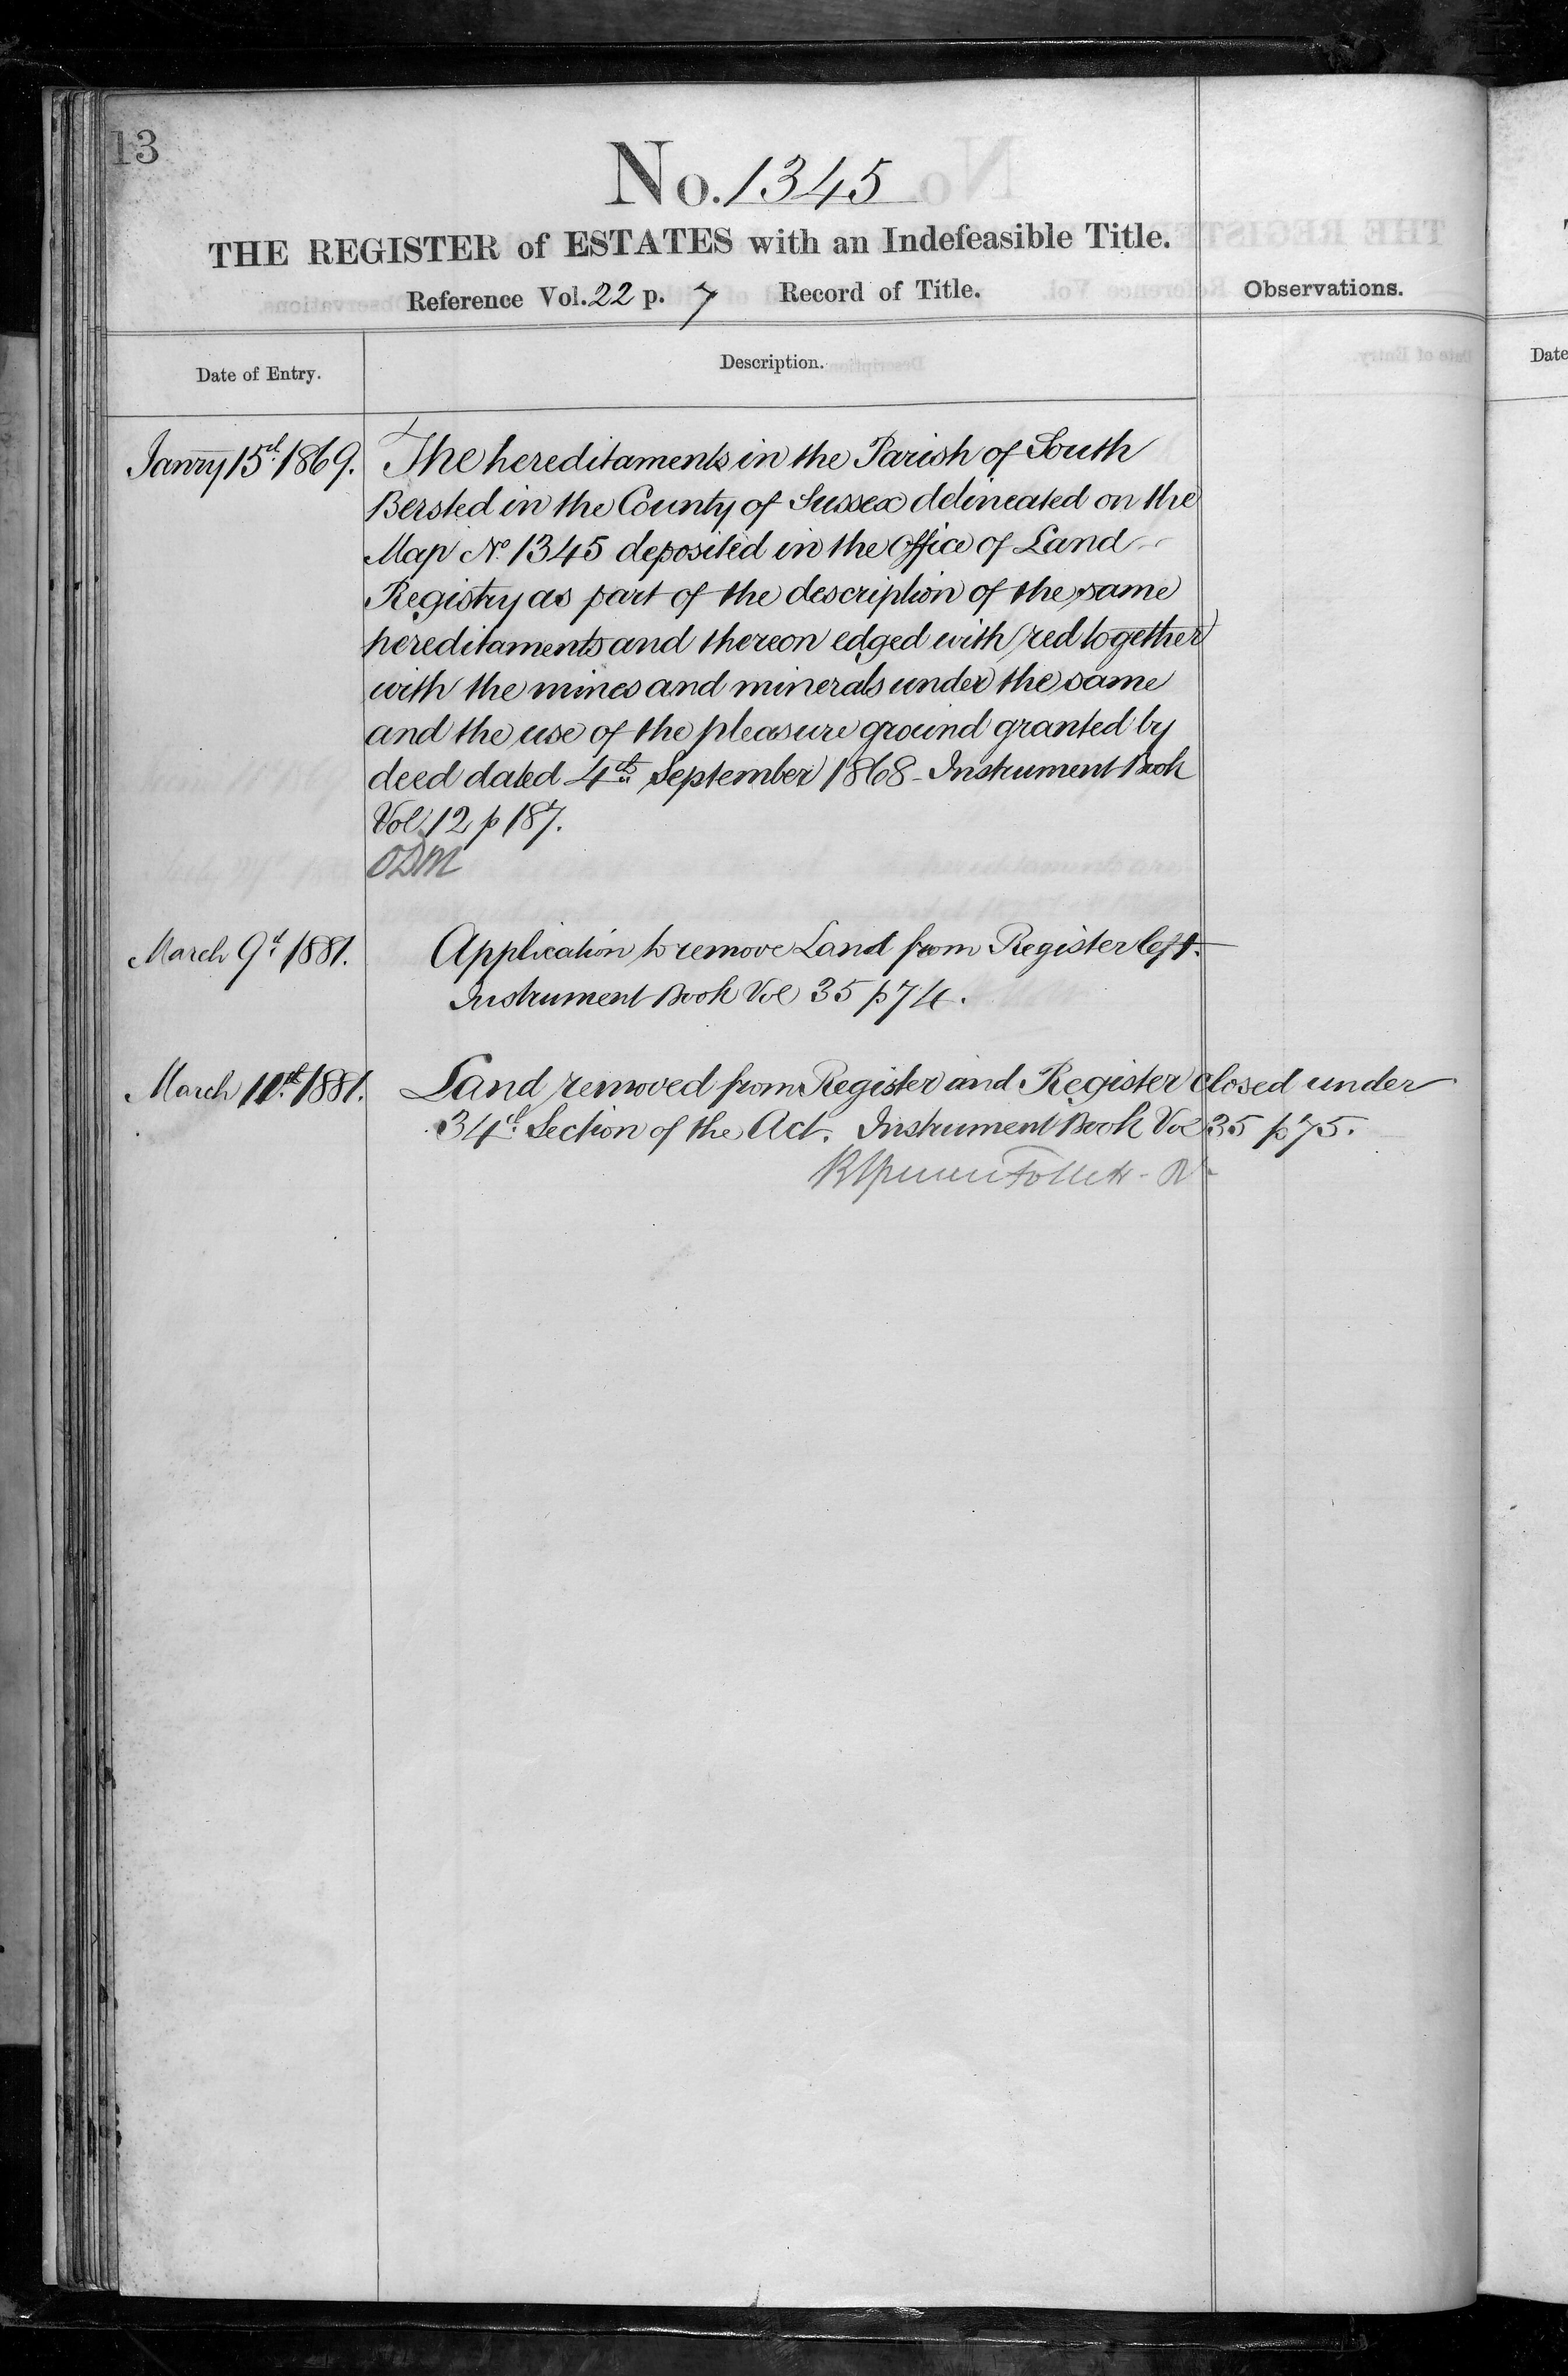 13
No. 1345
THE REGISTER of ESTATES with an Indefeasible Title.
Reference Vol. 22 p. 7 Record of Title.
Observations.
Date of Entry.
Description.
Date
Janry 15th 1869.
The hereditaments in the Parish of South
Bersted in the County of Sussex delineated on the
Map No. 1345 deposited in the Office of Land
Registry as part of the description of the same
hereditaments and thereon edged with red together
with the mines and minerals under the same
and the use of the pleasure ground granted by
deed dated 4th September 1868 - Instrument Book
Vol. 12 p 187.
ODM
March 9th 1881.
Application to remove Land from Register left.
Instrument Book Vol 35 p 74.
March 1881.
Land removed from Register and Register closed under
34th Section of the Act. Instrument Book Vol 35 p 75.
Follett